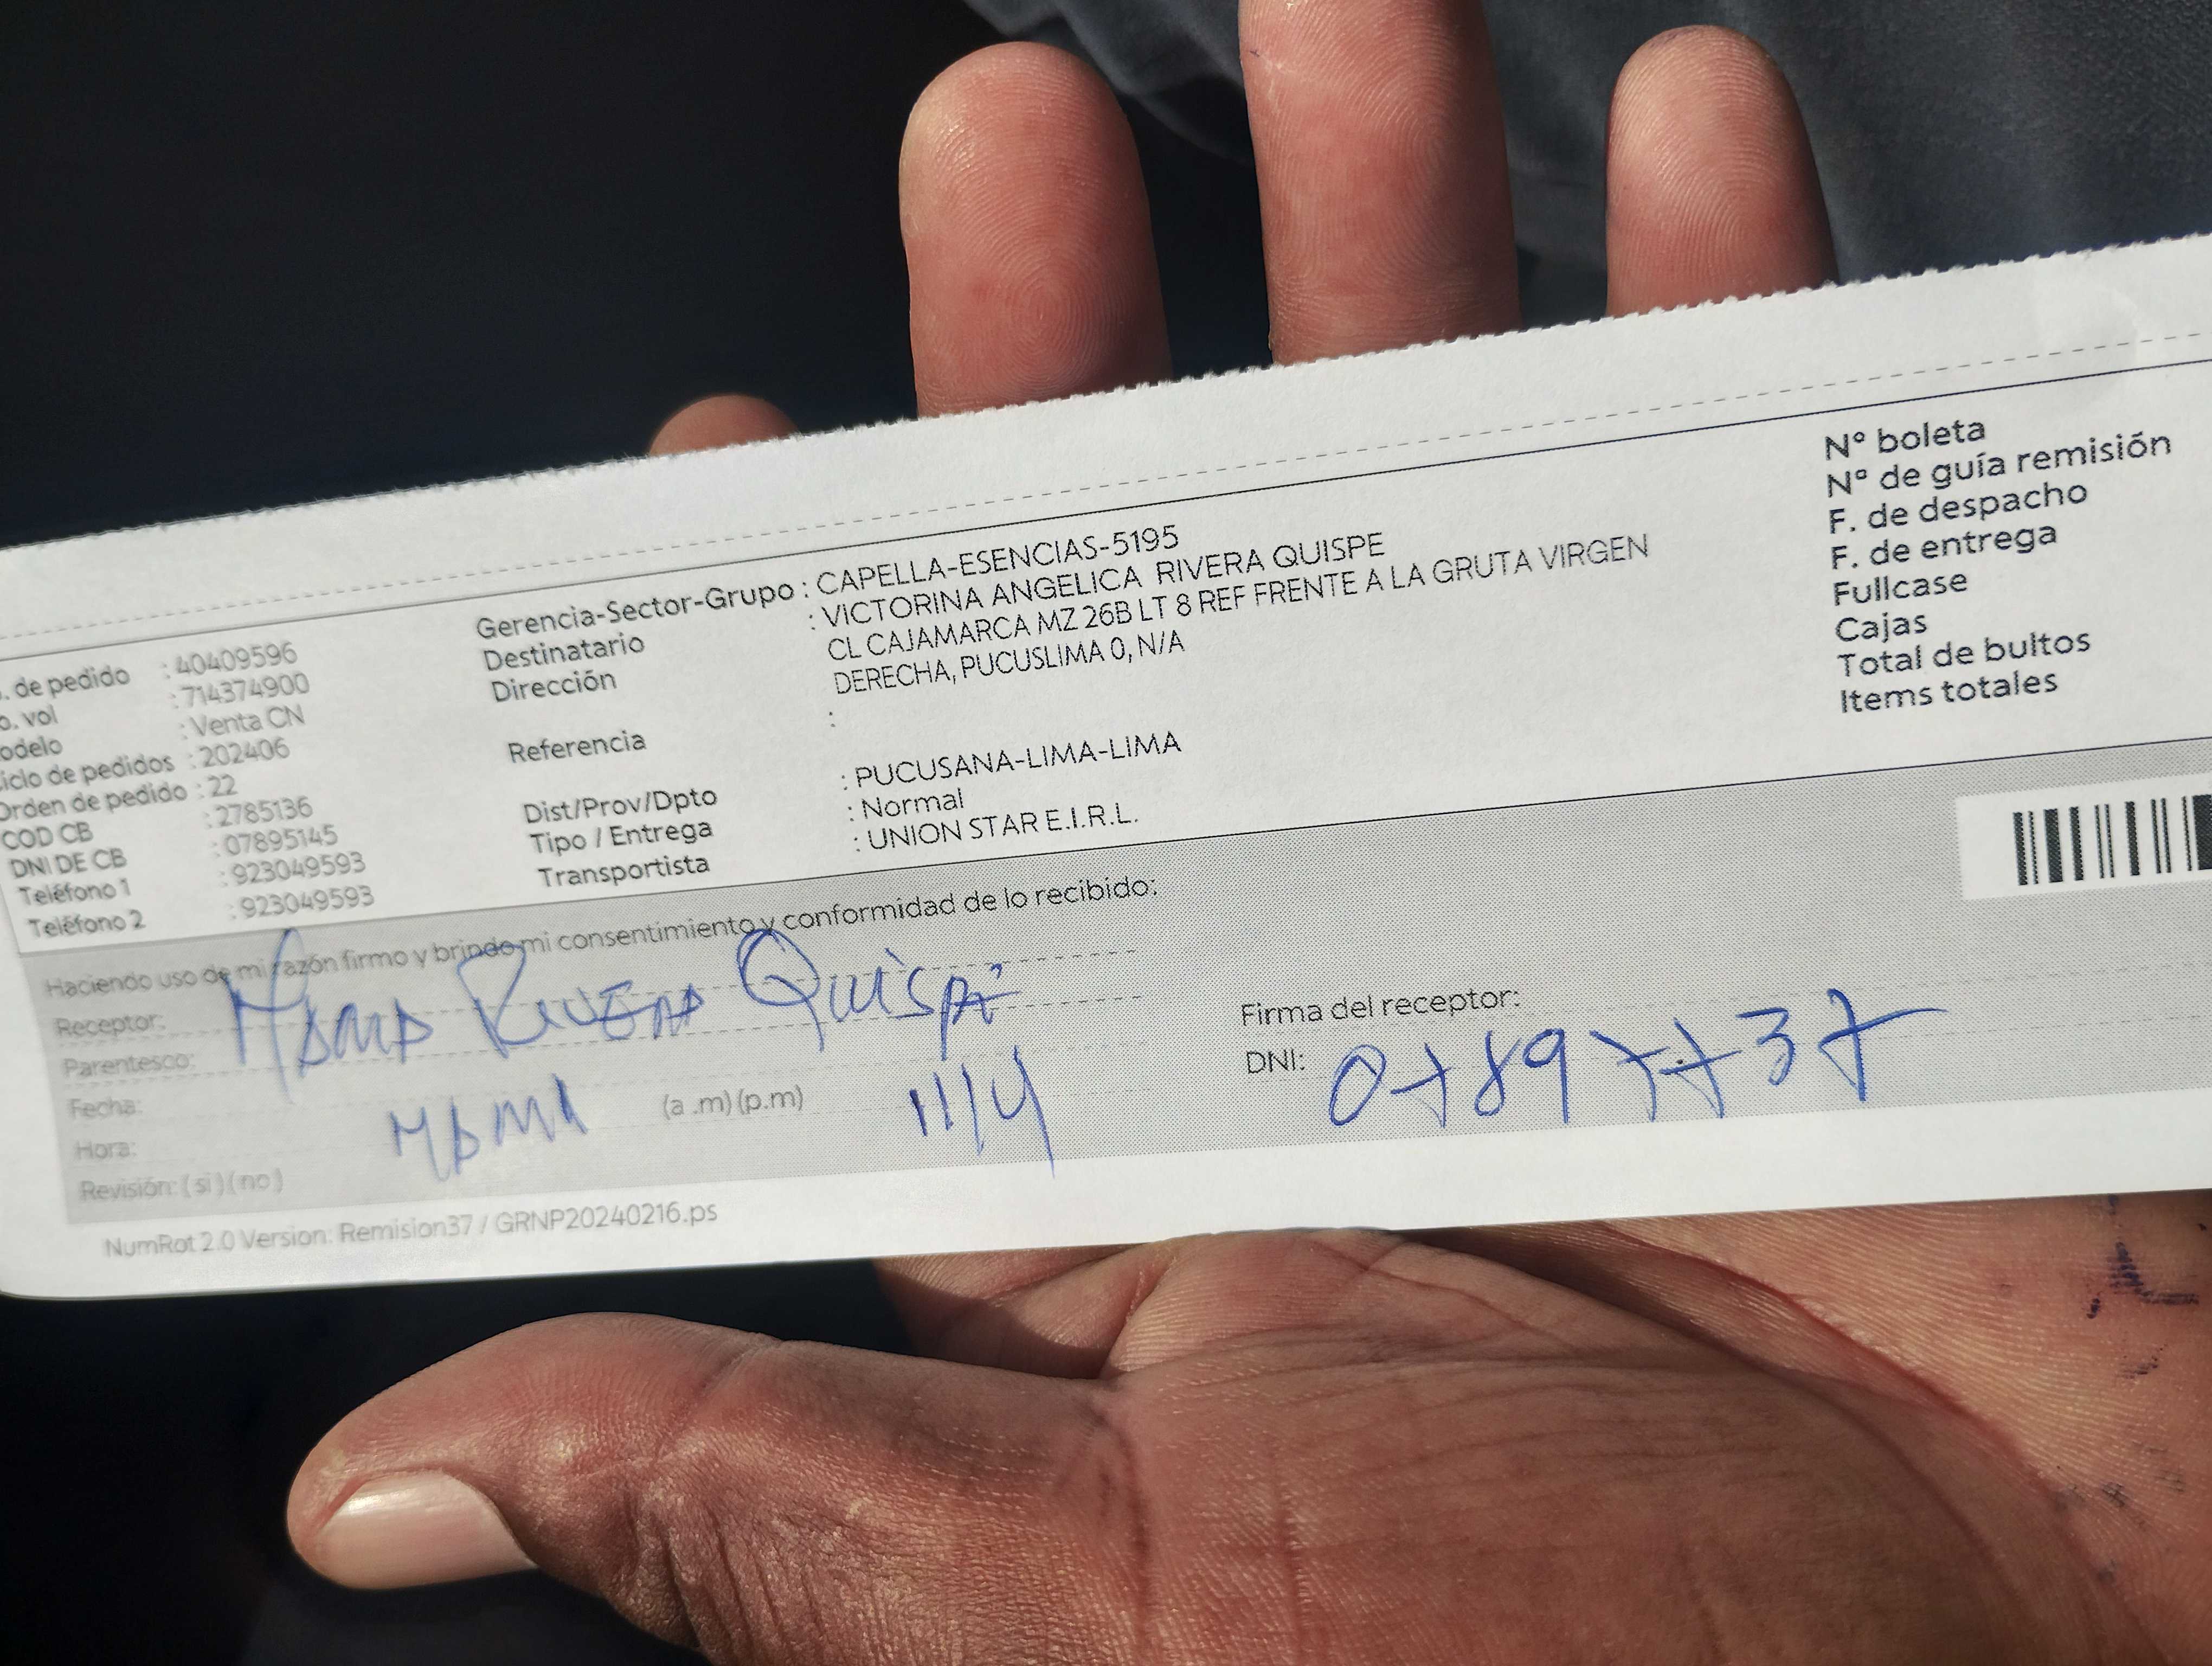 . de pedido : 40409596
o. vol : 714374900
odelo : Venta CN
iclo de pedidos : 202406
Orden de pedido : 22
COD CB : 2785136
DNI DE CB : 07895145
Teléfono 1 : 923049593
Teléfono 2 : 923049593
Gerencia-Sector-Grupo : CAPELLA-ESENCIAS-5195
Destinatario : VICTORINA ANGELICA RIVERA QUISPE
Dirección CL CAJAMARCA MZ 26B LT 8 REF FRENTE A LA GRUTA VIRGEN
DERECHA, PUCUSLIMA 0, N/A
Referencia :
Dist/Prov/Dpto : PUCUSANA-LIMA-LIMA
Tipo / Entrega : Normal
Transportista : UNION STAR E.I.R.L.
N° boleta
N° de guía remisión
F. de despacho
F. de entrega
Fullcase
Cajas
Total de bultos
Items totales
Haciendo uso de mi razón firmo y brindo mi consentimiento y conformidad de lo recibido:
Receptor: Rivera Quispe
Parentesco:
Fecha:
Hora: (a .m) (p.m) 11/4
Revisión: ( si ) ( no )
Firma del receptor:
DNI: 07897737
NumRot 2.0 Version: Remision37 / GRNP20240216.ps